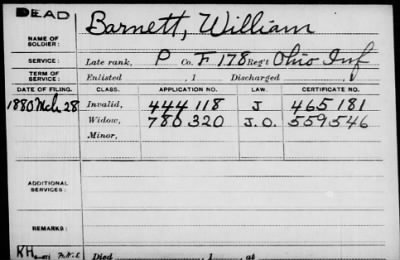 DEAD
NAME OF SOLDIER: Barnett, William
SERVICE: Late rank, P Co. F 178 Reg't Ohio Inf
TERM OF SERVICE: Enlisted , 1 Discharged , 1
DATE OF FILING. CLASS. APPLICATION NO. LAW. CERTIFICATE NO.
1880 Mch 28 Invalid, 444 118 J 465 181
Widow, 780 320 J.O. 559 546
Minor,
ADDITIONAL SERVICES:
REMARKS:
Died , 1 , at